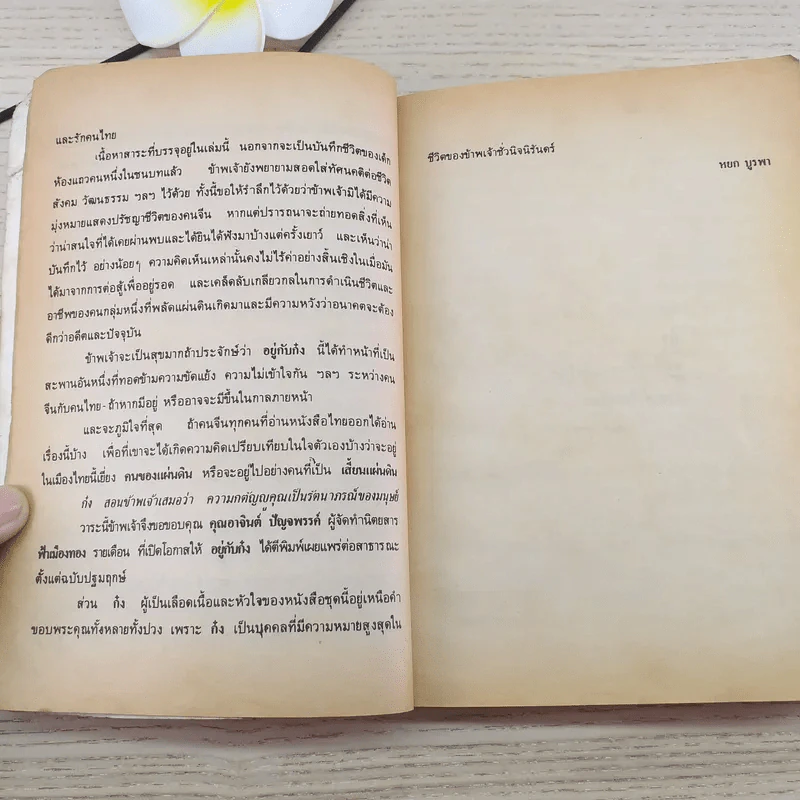 และรักคนไทย
เนื้อหาสาระที่บรรจุอยู่ในเล่มนี้ นอกจากจะเป็นบันทึกชีวิตของเด็ก
ห้องแถวคนหนึ่งในชนบทแล้ว ข้าพเจ้ายังพยายามสอดใส่ทัศนคติต่อชีวิต
สังคม วัฒนธรรม ฯลฯ ไว้ด้วย ทั้งนี้ขอให้รำลึกไว้ด้วยว่าข้าพเจ้ามิได้มีความ
มุ่งหมายแสดงปรัชญาชีวิตของคนจีน หากแต่ปรารถนาจะถ่ายทอดสิ่งที่เห็น
ว่าน่าสนใจที่ได้เคยผ่านพบและได้ยินได้ฟังมาบ้างแต่ครั้งเยาว์ และเห็นว่าน่า
บันทึกไว้ อย่างน้อยๆ ความคิดเห็นเหล่านั้นคงไม่ไร้ค่าอย่างสิ้นเชิงในเมื่อมัน
ได้มาจากการต่อสู้เพื่ออยู่รอด และเคล็ดลับเกลียวกลในการดำเนินชีวิตและ
อาชีพของคนกลุ่มหนึ่งที่พลัดแผ่นดินเกิดมาและมีความหวังว่าอนาคตจะต้อง
ดีกว่าอดีตและปัจจุบัน
ข้าพเจ้าจะเป็นสุขมากถ้าประจักษ์ว่า อยู่กับก๋ง นี้ได้ทำหน้าที่เป็น
สะพานอันหนึ่งที่ทอดข้ามความขัดแย้ง ความไม่เข้าใจกัน ฯลฯ ระหว่างคน
จีนกับคนไทย- ถ้าหากมีอยู่ หรืออาจจะมีขึ้นในกาลภายหน้า
และจะภูมิใจที่สุด ถ้าคนจีนทุกคนที่อ่านหนังสือไทยออกได้อ่าน
เรื่องนี้บ้าง เพื่อที่เขาจะได้เกิดความคิดเปรียบเทียบในใจตัวเองบ้างว่าจะอยู่
ในเมืองไทยนี้เยี่ยง คนของแผ่นดิน หรือจะอยู่ไปอย่างคนที่เป็น เสี้ยนแผ่นดิน
ก๋ง สอนข้าพเจ้าเสมอว่า ความกตัญญูคุณเป็นรัตนาภรณ์ของมนุษย์
วาระนี้ข้าพเจ้าจึงขอขอบคุณ คุณอาจินต์ ปัญจพรรค์ ผู้จัดทำนิตยสาร
ฟ้าเมืองทอง รายเดือน ที่เปิดโอกาสให้ อยู่กับก๋ง ได้ตีพิมพ์เผยแพร่ต่อสาธารณะ
ตั้งแต่ฉบับปฐมฤกษ์
ส่วน ก๋ง ผู้เป็นเลือดเนื้อและหัวใจของหนังสือชุดนี้อยู่เหนือคำ
ขอบพระคุณทั้งหลายทั้งปวง เพราะ ก๋ง เป็นบุคคลที่มีความหมายสูงสุดใน
ชีวิตของข้าพเจ้าชั่วนิจนิรันดร์
หยก บูรพา